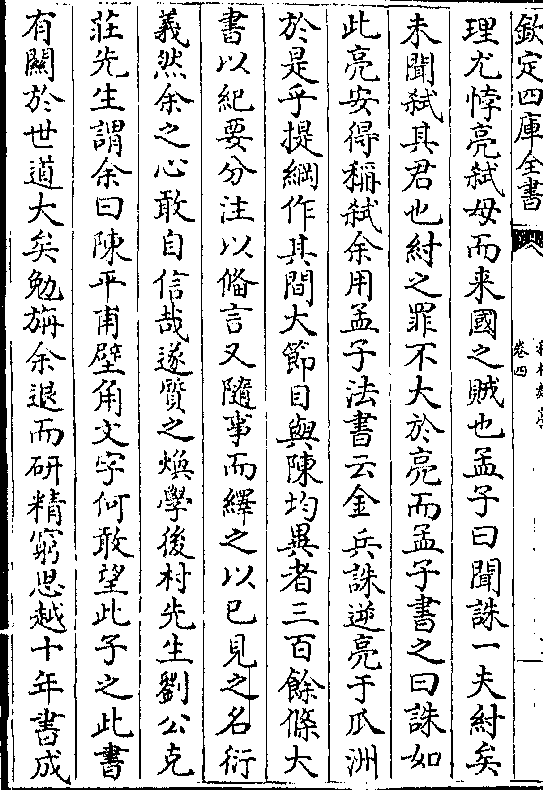 欽定四庫全書
卷四
理尤悖亮弑母而来國之賊也孟子曰聞誅一夫紂矣
未聞弑其君也紂之罪不大於亮而孟子書之曰誅如
此亮安得稱弑余用孟子法書云金兵誅逆亮于瓜洲
於是乎提綱作其間大節目與陳均異者三百餘條大
書以紀要分注以偹言又隨事而繹之以已見之名衍
義然余之心敢自信哉遂質之煥學後村先生劉公克
莊先生謂余曰陳平甫壁角文字何敢望此子之此書
有關於世道大矣勉旃余退而研精窮思越十年書成